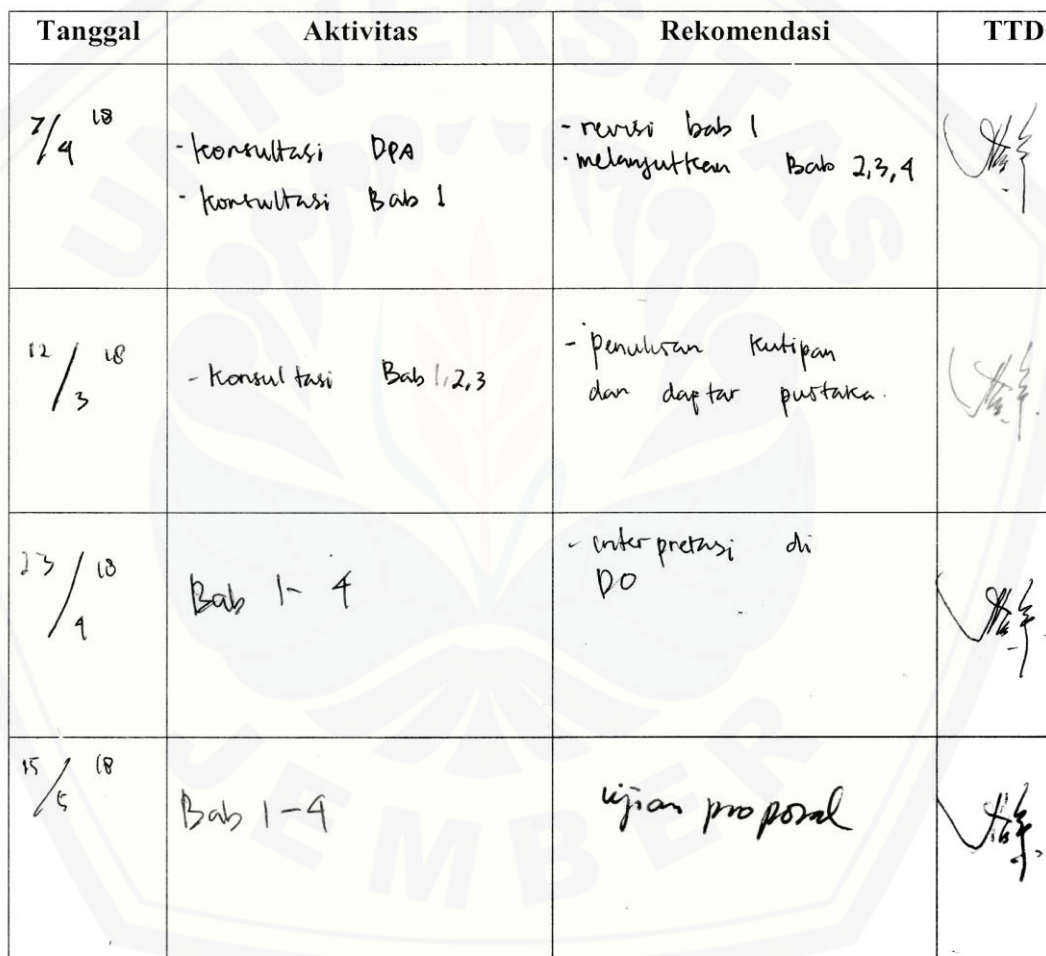 Tanggal Aktivitas Rekomendasi TTD
7/4 18
- konsultasi DPA
- konsultasi Bab 1
- revisi bab 1
- melanjutkan Bab 2,3,4
12/3 18
- Konsultasi Bab 1,2,3
- Penulisan kutipan
dan daptar pustaka.
23/4 18
Bab 1-4
- interpretasi di
DO
15/5 18
Bab 1-4
ujian proposal
UNIVERSITAS
JEMBER